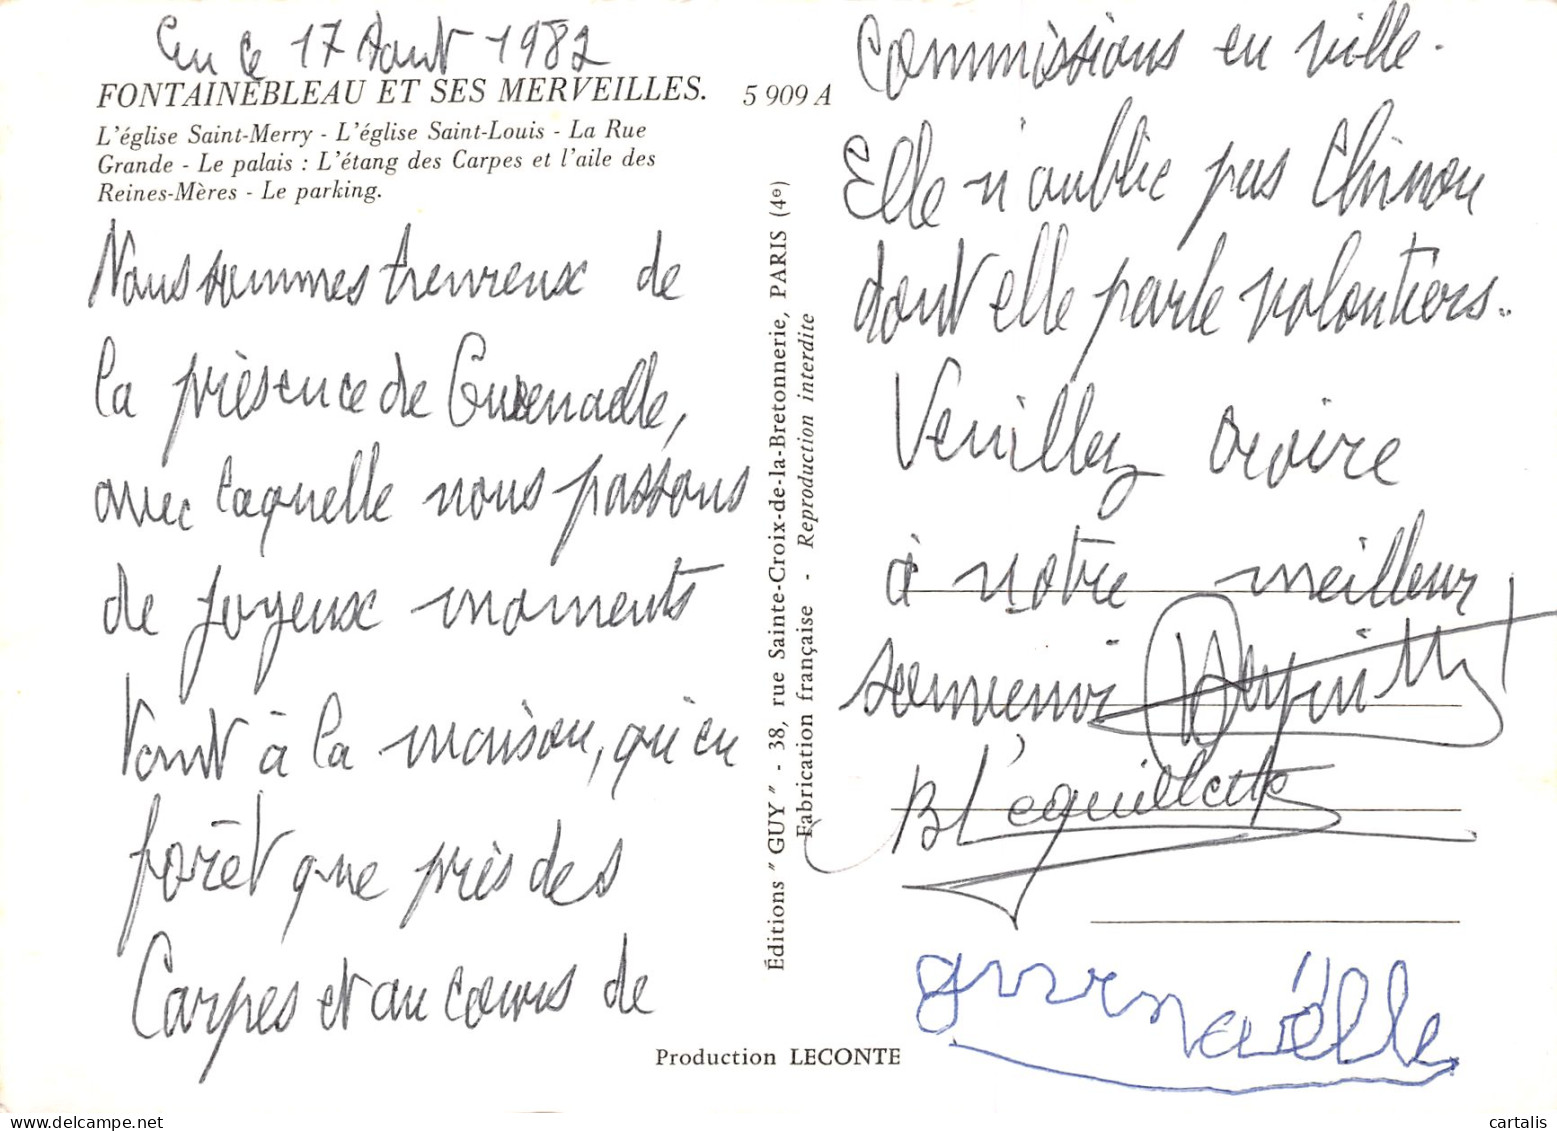 En ce 17 Aout 1982
FONTAINEBLEAU ET SES MERVEILLES.
5 909 A
L'église Saint-Merry - L'église Saint-Louis - La Rue
Grande - Le palais : L'étang des Carpes et l'aile des
Reines-Mères - Le parking.
Nous sommes heureux de
la présence de Gwenaelle,
avec laquelle nous passons
de joyeux moments
tant à la maison, qu'en
forêt que près des
Carpes et au cours de
Production LECONTE
Éditions "GUY" - 38, rue Sainte-Croix-de-la-Bretonnerie, PARIS (4e)
Fabrication française - Reproduction interdite
Commissions en ville.
Elle n'oublie pas Chinon
dont elle parle volontiers..
Veuillez croire
à notre meilleur
souvenir
B Lequillette
gwenaëlle
cartalis